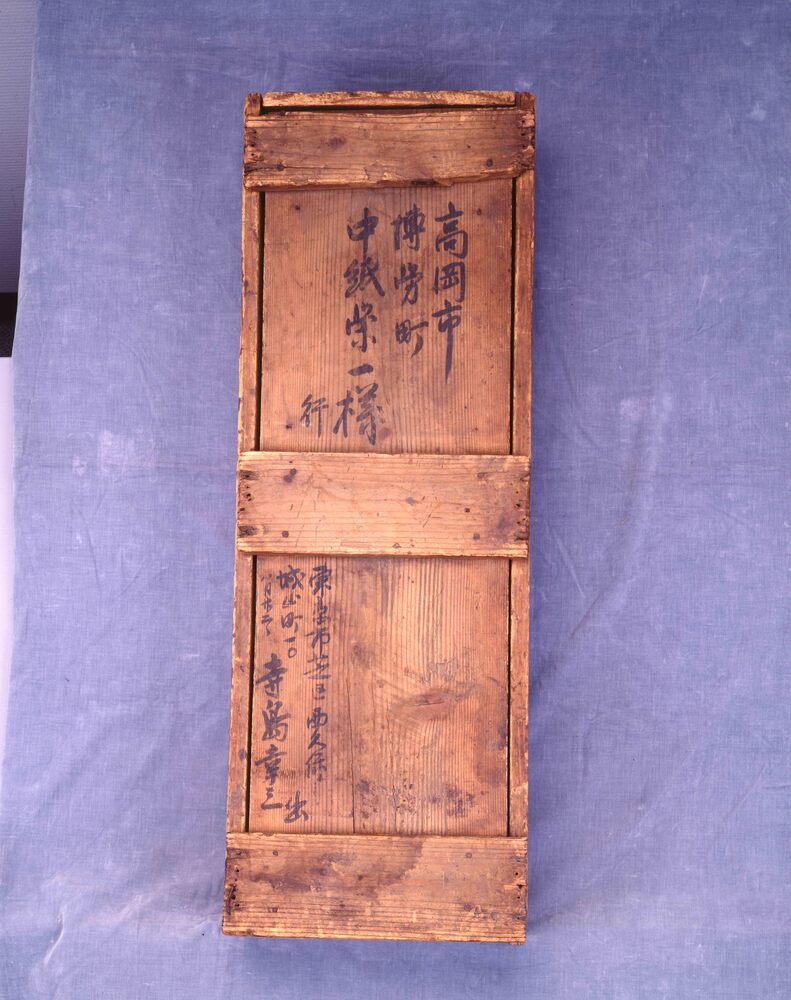 高岡市
博労町
中紙栄一様
行
東京市芝区西久保
城山町一〇
寺島幸三
出